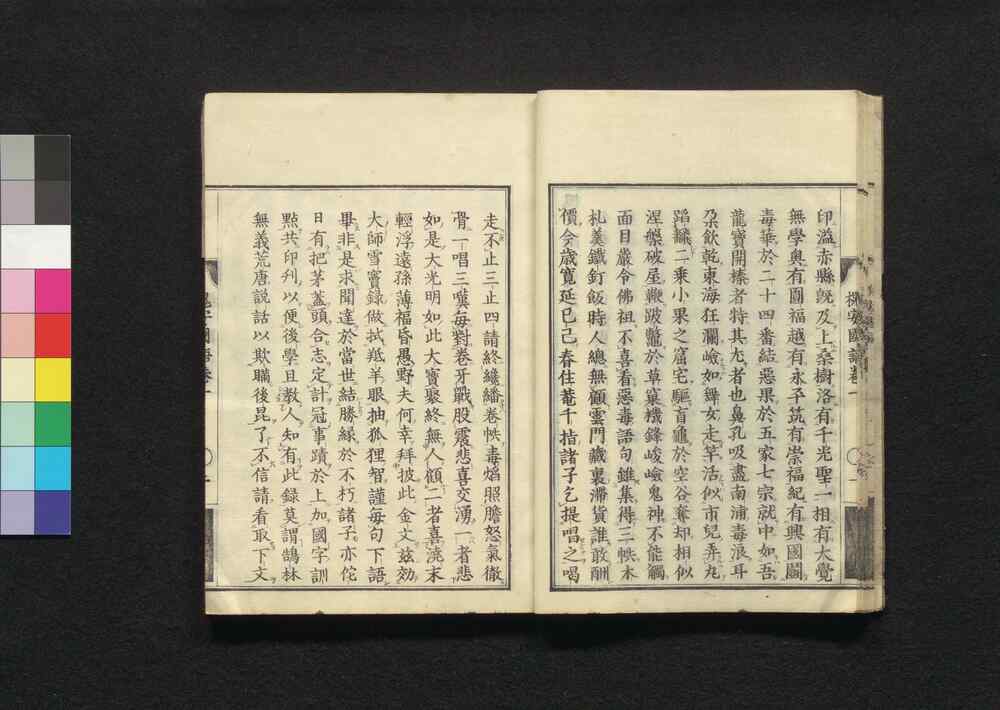 印溢赤縣既及上桑樹洛有千光聖一相有大覺
無學奥有圓福越有永平筑有崇福紀有興國闘
毒華於二十四番結惡果於五家七宗就中如吾
龍寶開榛者特其尤者也鼻孔吸盡南浦毒浪耳
朶飲乾東海狂瀾嶮如舞女走竿活似市兒弄丸
蹈飜二乗小果之窟宅驅盲龜於空谷奪却相似
涅槃破屋鞭跛鼈於草窠機鋒峻嶮鬼神不能觸
面目嚴令佛祖不喜看惡毒語句雖集得三帙木
札羹鐵釘飯時人總無顧雲門藏裏滞貨誰敢酬
價今歳寛延己巳春住菴千指諸子乞提唱之一喝
槐安國語卷一
走不止三止四請終纔繙卷帙毒熖照膽怒氣徹
骨一唱三嘆毎對卷牙戰股震悲喜交湧一者悲
如是大光明如此大寶聚終無人顧二者喜澆末
輕浮遠孫薄福昏愚野夫何幸拜披此金文茲効
大師雪竇録做拭羝羊眼抽狐狸智謹毎句下語
畢非是求聞達於當世結勝縁於不朽諸子亦佗
日有把茅蓋頭合志定計冠事蹟於上加國字訓
點共印刋以便後學且教人知有此録莫謂鵠林
無義荒唐説話以欺瞞後昆了不信請看取下文